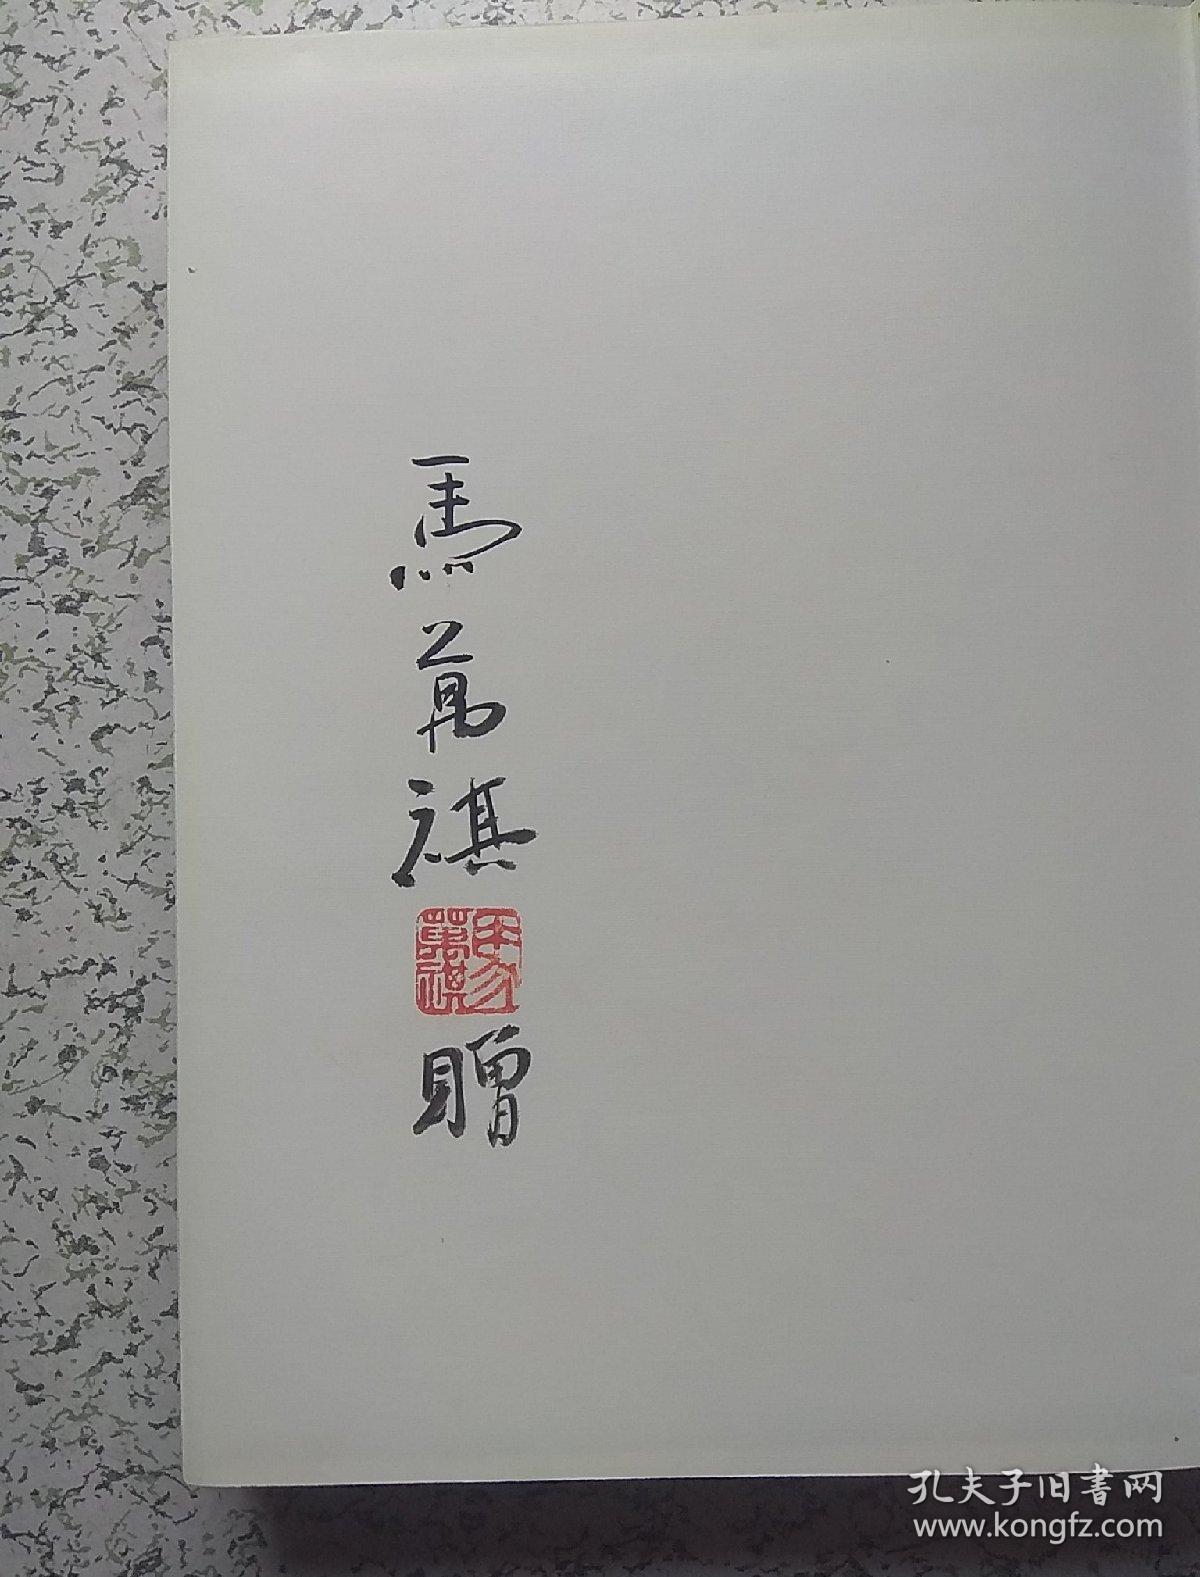 馬萬祺
馬萬祺
贈
孔夫子旧書网
www.kongfz.com